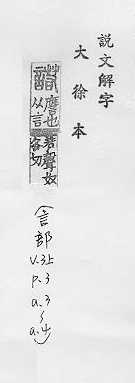 說文解字
大徐本
諾
譍也
从言
若聲奴
各切
(言部
v.3上
p.3
a.3
~
a.4)